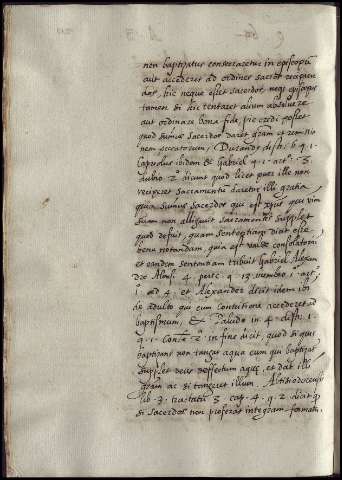 non baptizatus consecraretur in episcopũ
aut accederet ad ordines sacros recipien
dos, hic neque esset sacerdos neq; episcopus
tamen si hic tentaret alium absolvere
aut ordinare bona fide, pie credi posset
quod sumus sacerdos daret gratiam et remissio
nem peccatorum, Durandus dist. 6 q. 1.
Capreolus ibidem & Gabriel q. 1. art. 3.
dubio 2º dicunt quod licet puer ille non
reciperet sacramentũ daretur illi gratia
quia sumus sacerdos qui est xpus qui vim
suam non alligavit sacramentis supplet
quod defuit, quam sententiam dicit esse
bene notandam, quia est valde consolatoria
et eandem sententiam tribuit Gabriel Alexan
dro Alens. 4 parte q. 13 membro 1 art
1 ad 4. et Alexander dicit idem
de adulto qui cum contritione accederet ad
baptismum, & Paludo in 4. dist. 1.
q. 1. 2ª in fine dicit, quod si quis
baptizans non tangat aqua eum qui baptizat
supplet deus deffectum aquę, et dat illi
gratiam ac si tingeret illum. Altisiodorensis
lib. 3. tractatu 3 cap. 4. q. 2 dicit q̃
si sacerdos non proferat integram formam